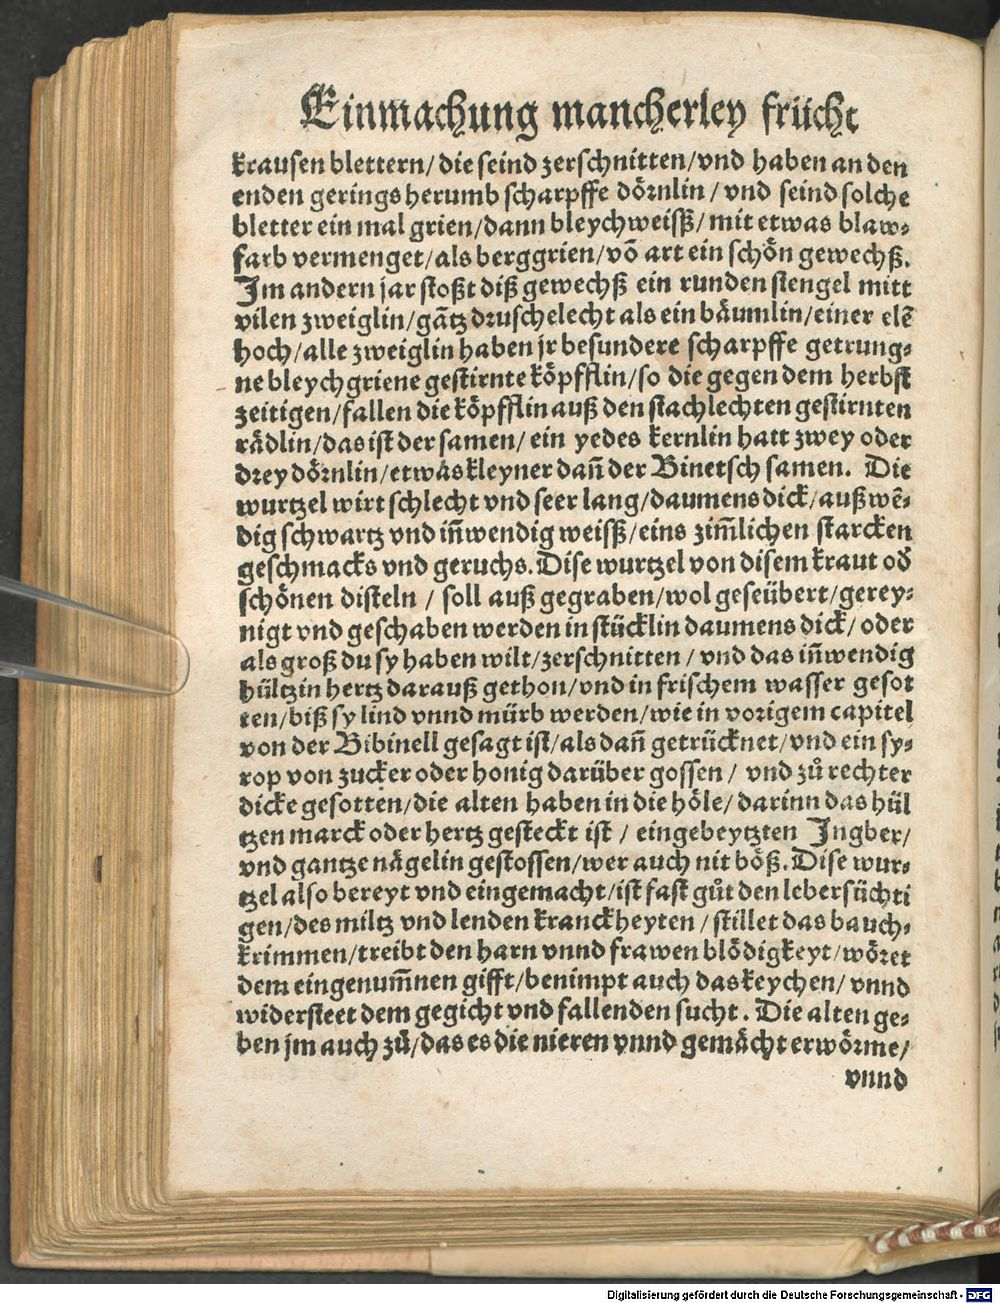 Einmachung mancherley frücht
krausen blettern/ die seind zerschnitten/ vnd haben an den
enden gerings herumb scharpffe dörnlin / vnd seind solche
bletter ein mal grien/ dann bleychweißß/ mit etwas blaw⸗
farb vermenget/ als berggrien/ võ art ein schön gewechß.
Im andern jar stoßt diß gewechß ein runden stengel mitt
vilen zweiglin/ gãtz druschelecht als ein bäumlin/ einer elẽ
hoch/ alle zweiglin haben jr besundere scharpffe getrung⸗
ne bleychgriene gestirnte köpfflin/ so die gegen dem herbst
zeitigen/ fallen die köpfflin auß den stachlechten gestirnten
rädlin/ das ist der samen/ ein yedes kernlin hatt zwey oder
drey dörnlin/ etwås kleyner dañ der Binetsch samen. Die
wurtzel wirt schlecht vnd seer lang/ daumens dick/ außwẽ⸗
dig schwartz vnd iñwendig weißß/ eins zim̃lichen starcken
geschmacks vnd geruchs. Dise wurtzel von disem kraut od̃
schönen disteln / soll auß gegraben/ wol geseübert/ gerey⸗
nigt vnd geschaben werden in stücklin daumens dick/ oder
als groß du sy haben wilt/ zerschnitten / vnd das iñwendig
hültzin hertz darauß gethon/ vnd in frischem wasser gesot
ten/ biß sy lind vnnd mürb werden/ wie in vorigem capitel
von der Bibinell gesagt ist/ als dañ getrücknet/ vnd ein sy⸗
rop von zucker oder honig darüber gossen / vnd zů rechter
dicke gesotten/ die alten haben in die höle/ darinn das hül
tzen marck oder hertz gesteckt ist / eingebeytzten Ingber/
vnd gantze nägelin gestossen/ wer auch nit böß. Dise wur⸗
tzel also bereyt vnd eingemacht/ ist fast gůt den lebersüchti
gen/ des miltz vnd lenden kranckheyten / stillet das bauch⸗
krimmen/ treibt den harn vnnd frawen blödigkeyt/ wöret
dem eingenum̃nen gifft/ benimpt auch das keychen/ vnnd
widersteet dem gegicht vnd fallenden sucht. Die alten ge⸗
ben jm auch zů/ das es die nieren vnnd gemächt erwörme/
vnnd
Digitalisierung gefördert durch die Deutsche Forschungsgemeinschaft - DFG